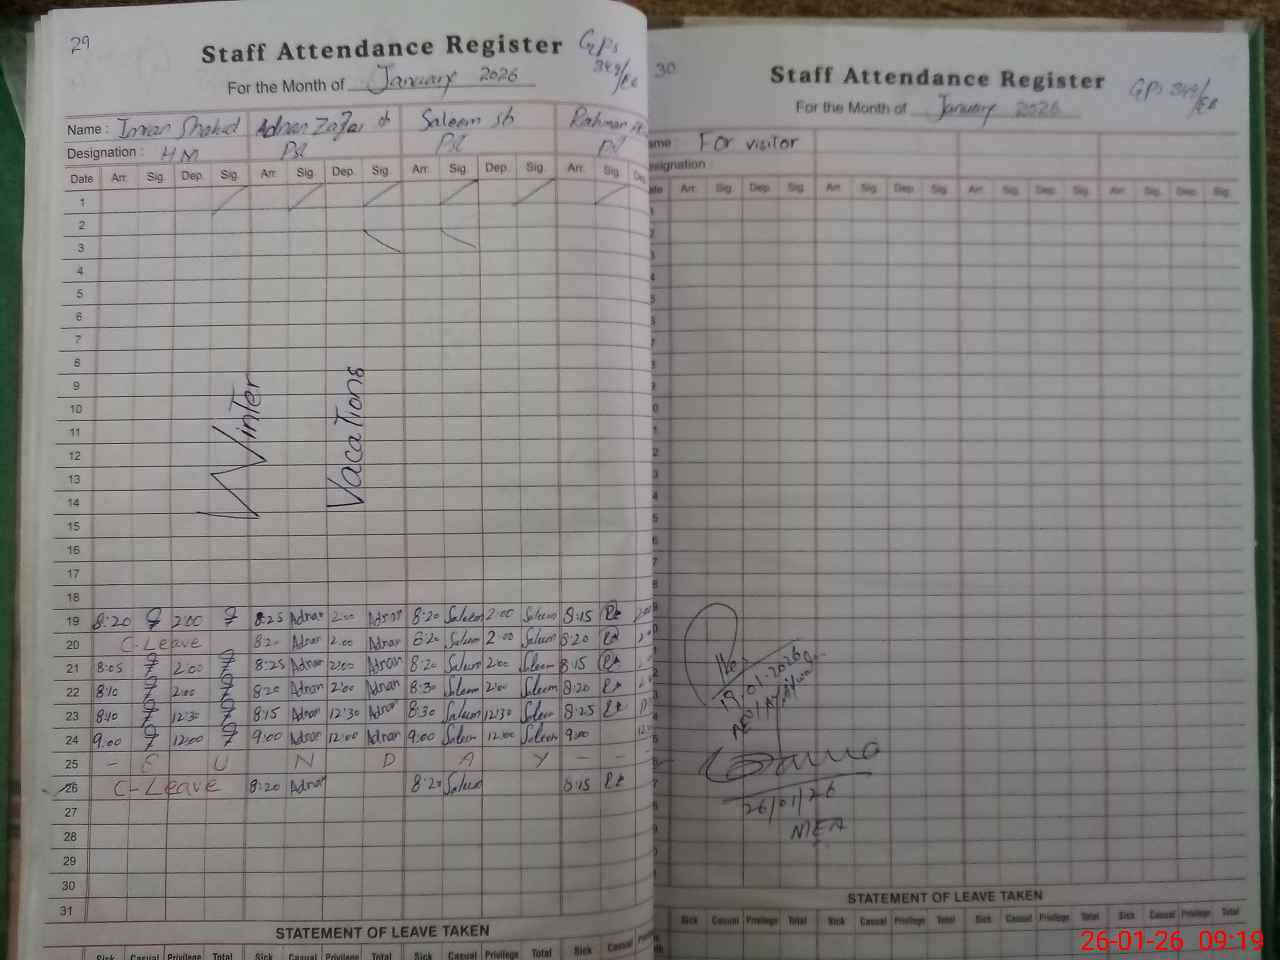 29
Staff Attendance Register GPS 349/EB
For the Month of January 2026
Name : Imran Shahid Adnan Zafar sb Saleem sb Rahman
Designation : HM PST PST PST
Date Arr. Sig. Dep. Sig. Arr. Sig. Dep. Sig. Arr. Sig. Dep. Sig. Arr. Sig. Dep.
1
2
3
4
5
6
7
8
9
10
11
12
13
14
15
16
17
18
Winter
Vacations
19 8:20 2:00 8:25 Adnan 2:00 Adnan 8:20 Saleem 2:00 Saleem 8:15
20 C-Leave 8:20 Adnan 2:00 Adnan 8:20 Saleem 2:00 Saleem 8:20
21 8:05 2:00 8:25 Adnan 2:00 Adnan 8:20 Saleem 2:00 Saleem 8:15
22 8:10 2:00 8:20 Adnan 2:00 Adnan 8:30 Saleem 2:00 Saleem 8:20
23 8:10 12:30 8:15 Adnan 12:30 Adnan 8:30 Saleem 12:30 Saleem 8:25
24 9:00 12:00 9:00 Adnan 12:00 Adnan 9:00 Saleem 12:00 Saleem 9:00
25 - S U N D A Y - -
26 C-Leave 8:20 Adnan 8:20 Saleem 8:15
27
28
29
30
31
STATEMENT OF LEAVE TAKEN
Sick Casual Privilege Total Sick Casual Privilege Total Sick Casual Privilege Total Sick Casual
30
Staff Attendance Register GPS 349/EB
For the Month of January 2026
For visitor
Arr. Sig. Dep. Sig. Arr. Sig. Dep. Sig. Arr. Sig. Dep. Sig. Arr. Sig. Dep. Sig.
19.01.2026
26/01/26
MEA
STATEMENT OF LEAVE TAKEN
Sick Casual Privilege Total Sick Casual Privilege Total Sick Casual Privilege Total Sick Casual Privilege Total
26-01-26 09:19